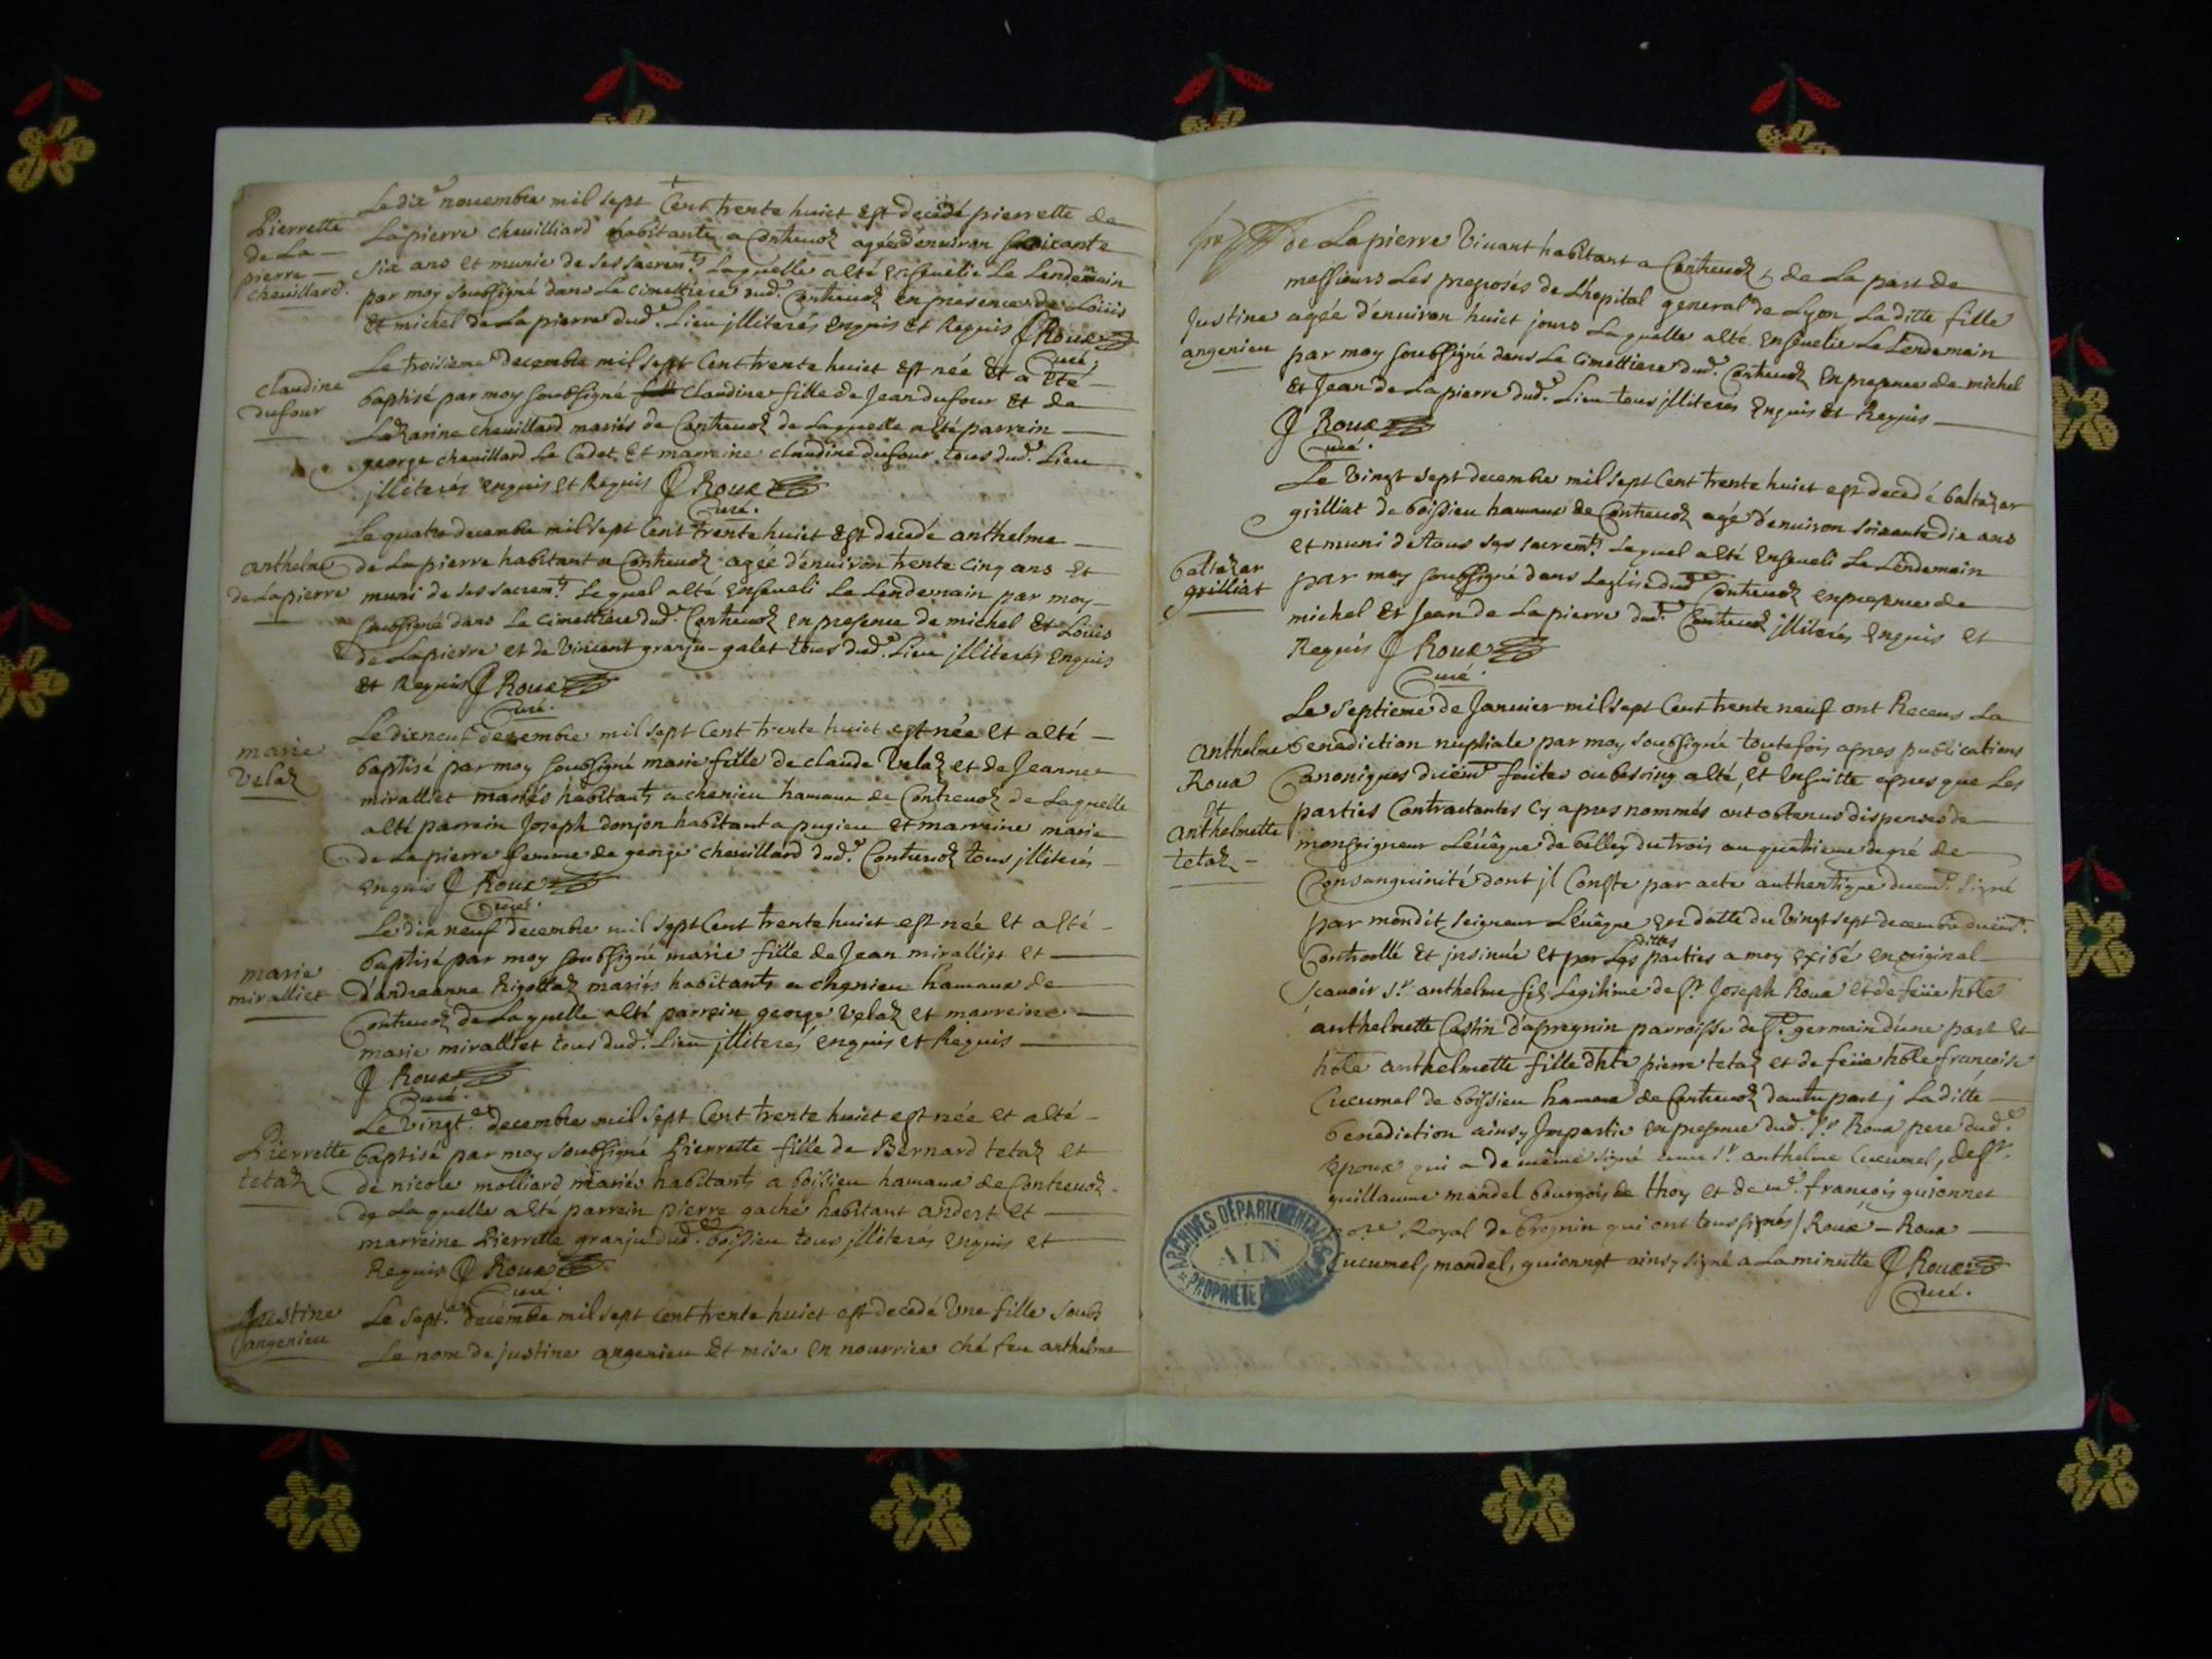 Pierrette
de La
pierre
cheuillard.
Le dixe nouembre mil sept Cent trente huict Est decedé pierrette de
Lapierre cheuilliard habitante a Contreuoz agée d'enuiron soixante
six ans et munie de ses sacremts. Laquelle a Eté Enseuelie Le Lendemain
par moy soubsigné dans Le cimettiere dude. Contreuoz en presence de Loüis
Et michel de Lapierre dude. Lieu jlliterés Enquis Et Requis J Roux
Curé.
claudine
dufour
Le troisieme decembre mil sept Cent trente huict Est née Et a Eté
baptisé par moy soubsigné claudine fille de Jean dufour Et de
Lazarine cheuillard mariés de Contreuoz de Laquelle a Eté parrein
george cheuillard Le Cadet Et marreine claudine dufour tous dude. Lieu
jlliterés Enquis Et Requis J Roux
Curé.
anthelme
de Lapierre
Le quatre decembre mil sept Cent trente huict Est decedé anthelme
de Lapierre habitant a Contreuoz agée d'enuiron trente Cinq ans Et
muni de ses sacremts. Lequel a Eté Enseueli Le Lendemain par moy
soubsigné dans Le cimettiere dude. Contreuoz En presence de michel Et Loüis
de Lapierre et de Vincent granju-galet tous dude. Lieu jlliterés Enquis
Et Requis J Roux
Curé.
marie
Velaz
Le dixneuf decembre mil sept Cent trente huict est née Et a Eté
baptisé par moy soubsigné marie fille de claude Velaz et de Jeanne
miralliet mariés habitants a chenieu hamaux de Contreuoz de Laquelle
a Eté parrein Joseph donjon habitant a pugieu Et marreine marie
de Lapierre femme de george cheuillard dude. Contreuoz tous jlliterés
Enquis J Roux
Curé.
marie
miralliet
Le dix neuf decembre mil sept Cent trente huict est née Et a Eté
baptisé par moy soubsigné marie fille de Jean miralliet et
d'andreanne Rigottaz mariés habitants a chenieu hamaux de
Contreuoz de Laquelle a Eté parrein george Velaz et marreine
marie miralliet tous dude. Lieu jlliterés enquis et Requis
J Roux
Curé.
Pierrette
tetaz
Le Vingte. decembre mil sept Cent trente huict est née et a Eté
baptisé par moy soubsigné Pierrette fille de Bernard tetaz et
de nicole molliard mariés habitants a boissieu hamaux de Contreuoz
de Laquelle a Eté parrein pierre gaché habitant andert et
marreine Pierrette granju dude. boissieu tous jlliterés enquis et
Requis J Roux
Curé.
Justine
angenieu
Le septe. decembre mil sept cent trente huict est decedé Vne fille soubs
Le nom de justine angenieu Et mise En nourrice ché feu anthelme
de Lapierre Viuant habitant a Contreuoz de La part de
messieurs Les preposés de Lhopital general de Lyon La ditte fille
Justine
angenieu
agée d'enuiron huict jours Laquelle a Eté Enseuelie Le Lendemain
par moy soubsigné dans Le Cimettiere dude. Contreuoz En presence de michel
Et Jean de Lapierre dude. Lieu tous jlliterés Enquis Et Requis
J Roux
Curé.
baltazar
grilliat
Le Vingt sept decembre mil sept Cent trente huict est decedé baltazar
grilliat de boissieu hamaux de Contreuoz agé d'enuiron soixante dix ans
et muni de tous ses sacremts. Lequel a Eté Enseueli Le Lendemain
par moy soubsigné dans Leglise dude Contreuoz en presence de
michel Et Jean de Lapierre dude. Contreuoz jlliterés Enquis et
Requis J Roux
Curé.
Anthelme
Roux
Et
Anthelmette
tetaz
Le septieme de Januier mil sept Cent trente neuf ont Receus La
benediction nuptiale par moy soubsigné toutefois apres publications
Canoniques duëmt faites ou besoing a Eté, Et Ensuitte apres que Les
parties Contractantes Cy apres nommés ont obtenus dispenses de
monseigneur Léuêque de belley du trois au quatrieme degré de
Consanguinité dont jl Conste par acte authentique duemt. signé
par mondit seigneur Léuêque en datte du Vingt sept decembre duëmt.
Controllé Et jnsinué et par Les dittes parties a moy exibé en original
scauoir sr. anthelme fils Legitime de sr Joseph Roux et de feüe hble
anthelmette Castin d'apregnin parroisse de st. germain d'une part Et
hble anthelmette fille d'hble pierre tetaz et de feüe hble francoise
Cucumel de boissieu hamaux de Contreuoz dautre part, La ditte
benediction ainsy Jmpartie en presence dude. sr Roux pere dude.
Epoux qui a de même signé auec sr. anthelme Cucumel, de sr.
guillaume mandel bourgois de thoy et de me. francois guionnet
nore Royal de bregnin qui ont tous signés / Roux - Roux
Cucumel, mandel, guionnet ainsy signé a La minutte J Roux
Curé.
ARCHIVES DÉPARTEMENTALES
AIN
PROPRIÉTÉ PUBLIQUE